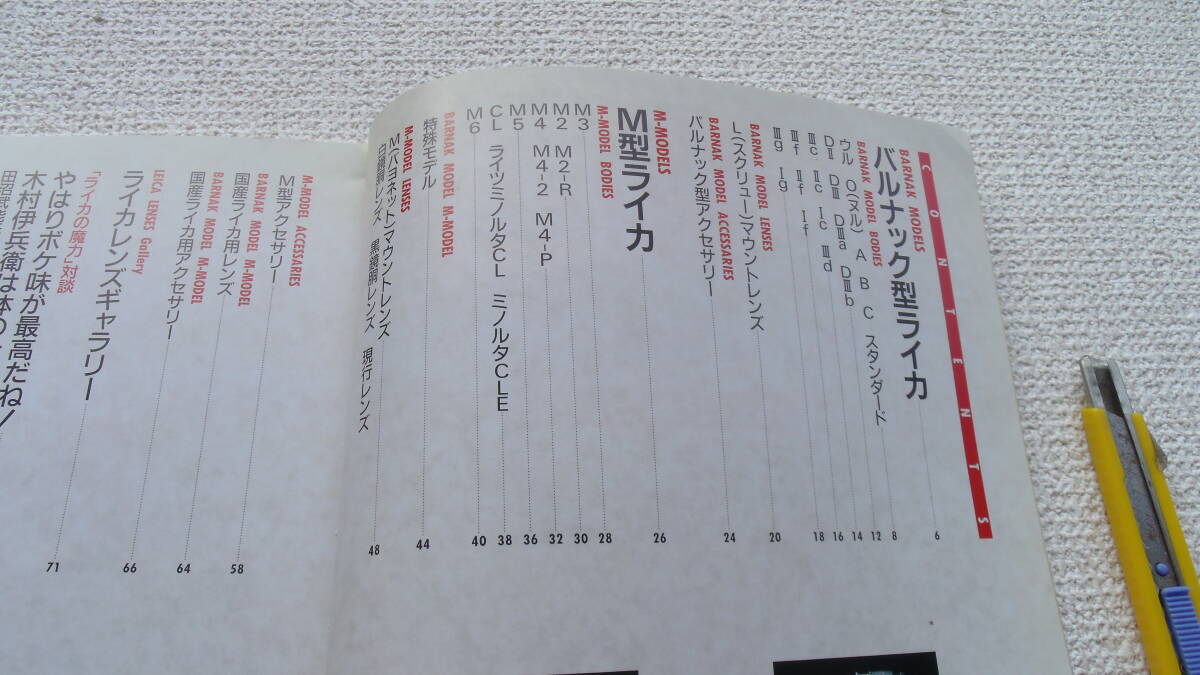 CONTENTS
BARNAK MODELS
バルナック型ライカ 6
BARNAK MODEL BODIES
ウル O(ヌル) A B C スタンダード 8
DⅡ DⅢ DⅢa DⅢb 12
Ⅲc Ⅱc Ⅰc Ⅲd 14
Ⅲf Ⅱf Ⅰf 16
Ⅲg Ⅰg 18
BARNAK MODEL LENSES
L(スクリュー)マウントレンズ 20
BARNAK MODEL ACCESSARIES
バルナック型アクセサリー 24
M-MODELS
M型ライカ 26
M-MODEL BODIES
M3 28
M2 M2-R 30
M4 M4-2 M4-P 32
M5 36
CL ライツミノルタCL ミノルタCLE 38
M6 40
BARNAK MODEL M-MODEL
特殊モデル 44
M-MODEL LENSES
M(バヨネット)マウントレンズ 48
白鏡胴レンズ 黒鏡胴レンズ 現行レンズ
M-MODEL ACCESSARIES
M型アクセサリー
BARNAK MODEL M-MODEL
国産ライカ用レンズ 58
BARNAK MODEL M-MODEL
国産ライカ用アクセサリー 64
LEICA LENSES Gallery
ライカレンズギャラリー 66
「ライカの魔力」対談
やはりボケ味が最高だね! 71
木村伊兵衛は体の